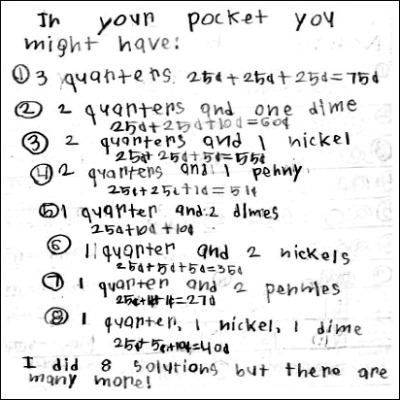 In your pocket you
might have:
① 3 quarters 25¢+25¢+25¢=75¢
② 2 quarters and one dime
25¢+25¢+10¢=60¢
③ 2 quarters and 1 nickel
25¢+25¢+5¢=55¢
④ 2 quarters and 1 penny
25¢+25¢+1¢=51¢
⑤ 1 quarter and 2 dimes
25¢+10¢+10¢
⑥ 1 quarter and 2 nickels
25¢+5¢+5¢=35¢
⑦ 1 quarter and 2 pennies
25¢+1¢+1¢=27¢
⑧ 1 quarter, 1 nickel, 1 dime
25¢+5¢+10¢=40¢
I did 8 solutions but there are
many more!